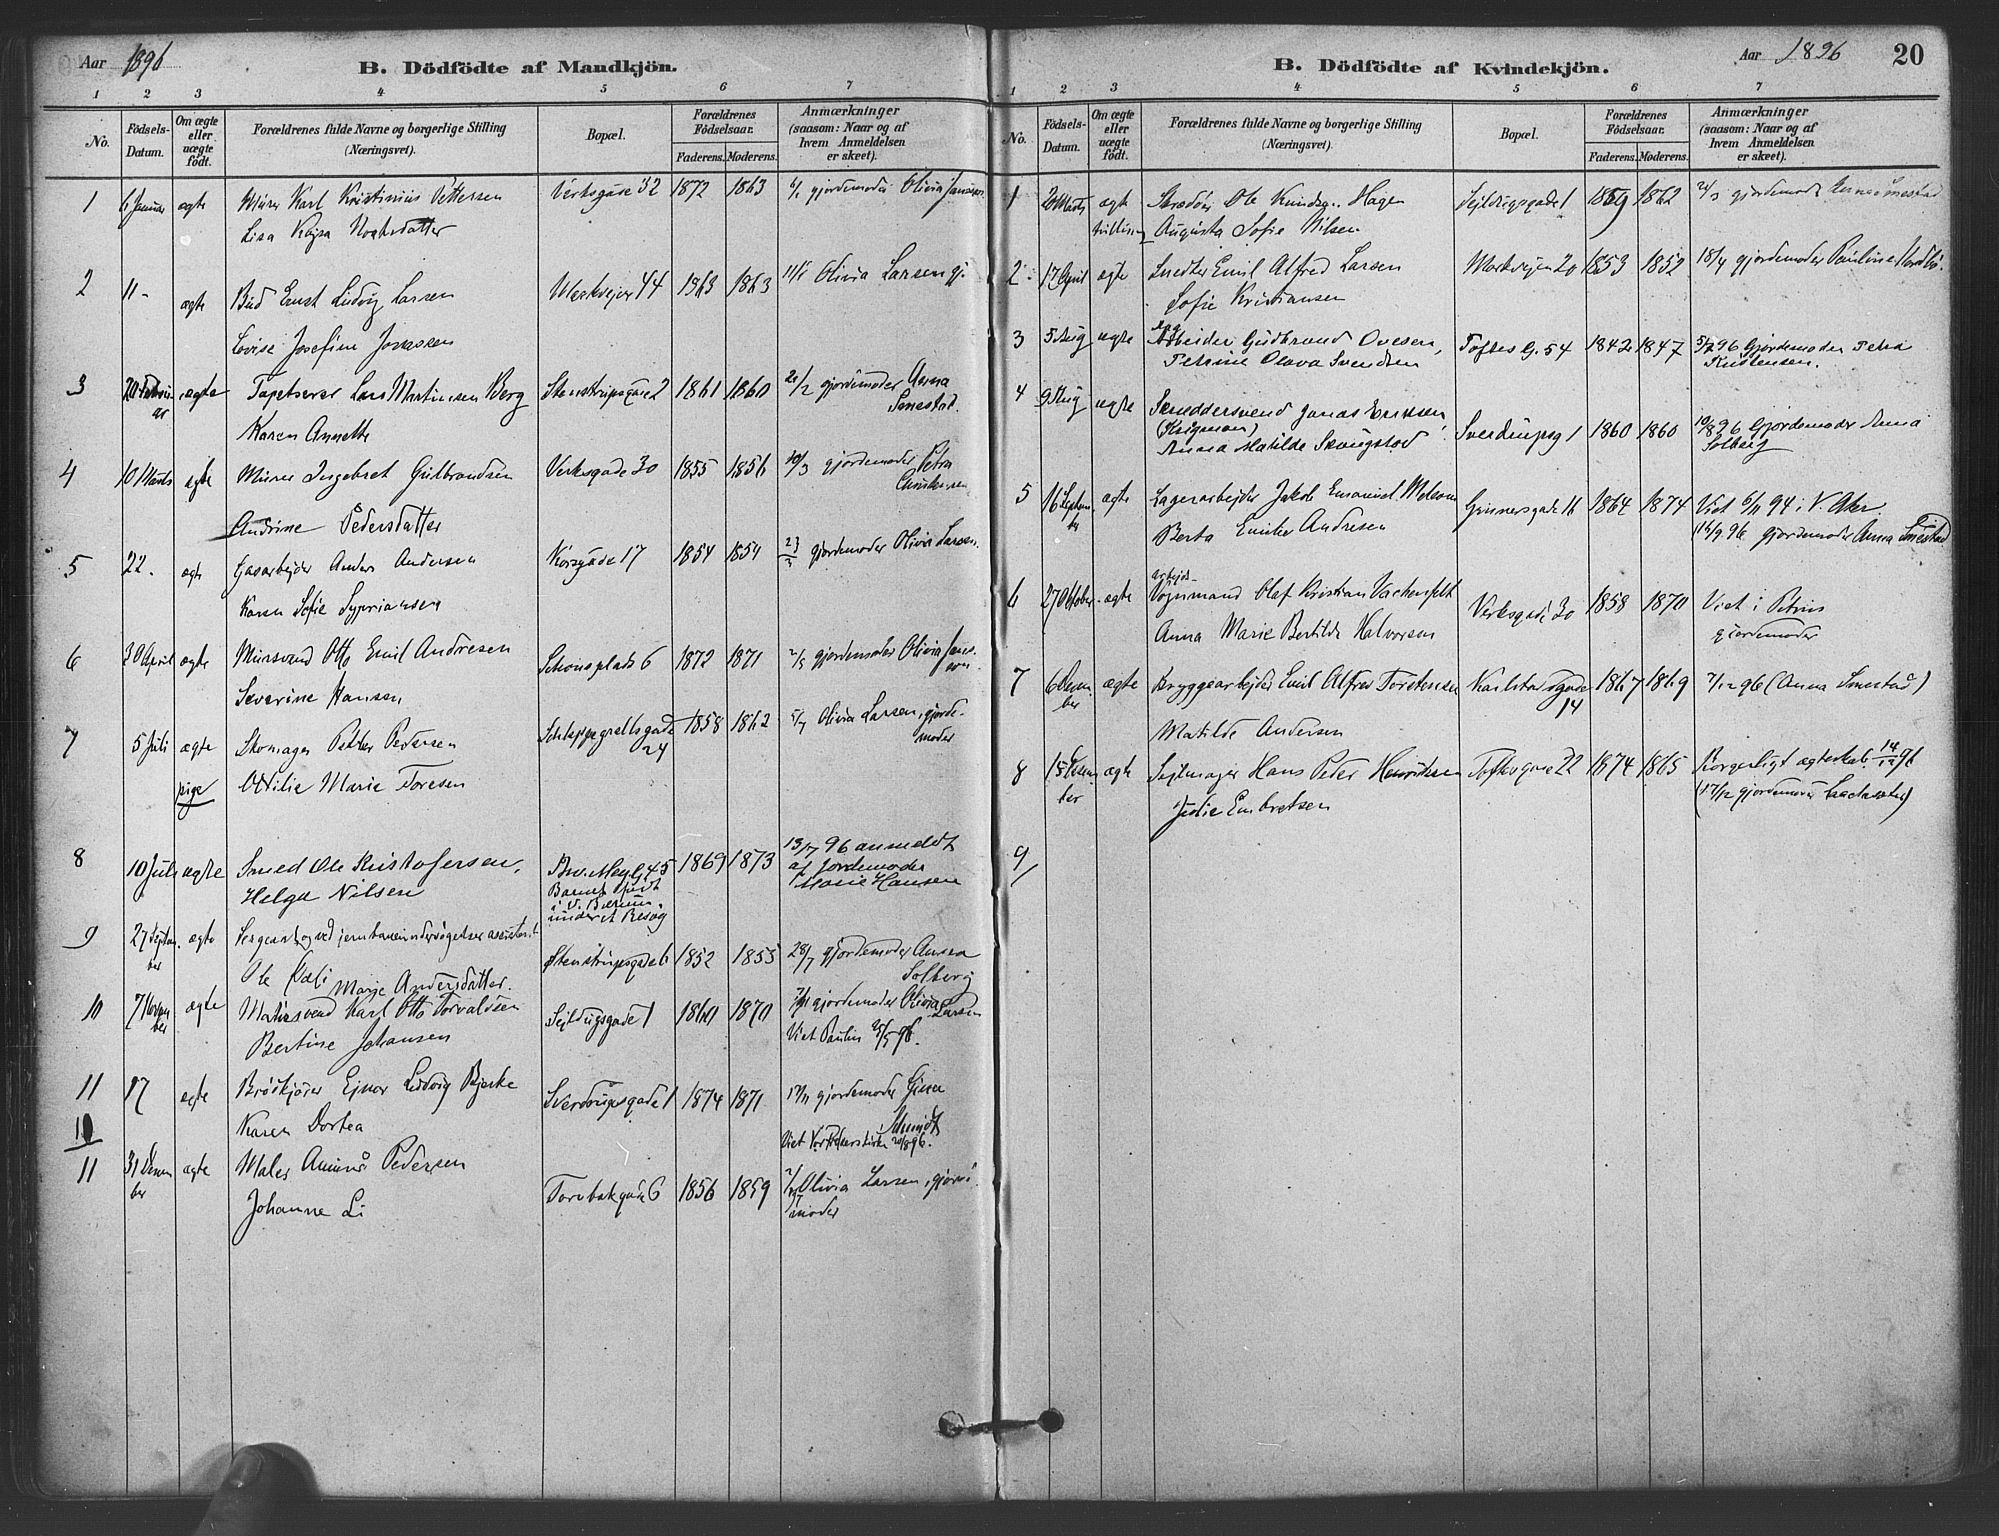 Aar 1896
B. Dödfödte af Mandkjön.
1 2 3 4 5 6 7
No.
Födsels-Datum.
Om ægte eller uægte födt.
Forældrenes fulde Navne og borgerlige Stilling (Næringsvei).
Bopæl.
Forældrenes Födselsaar.
Faderens. Moderens.
Anmærkninger (saasom: Naar og af hvem Anmeldelsen er skeet).
1 6 Januar ægte Murer Karl Kristinius Pettersen Verksgade 32 1872 1863 6/1 gjordemoder Olivia
Lisa Kajsa
2 11 - ægte Bud Ernst Ludvig Larsen Markvejen 44 1863 1863 11/1 Olivia Larsen gj.
Lovise Josefine Jonassen
3 20 Februar ægte Tapetserer Lars Martinsen Berg Stenstrupsgade 2 1861 1860 21/2 gjordemoder Anna Smestad.
Karen Annette
4 10 Marts ægte Murer Ingebret Gulbrandsen Verksgade 30 1855 1856 10/3 gjordemoder Petra Christensen
Andrine Pedersdatter
5 22. ægte Gasarbejder Anders Andersen Korsgade 17 1854 1854 23/3 gjordemoder Olivia Larsen.
Karen Sofie Sypriansen
6 30 April ægte Mursvend Otto Emil Andresen Schousplads 6 1872 1871 2/5 gjordemoder Olivia
Severine Hansen
7 5 Juli ægte Skomager Petter Pedersen Schleppegrellsgade 24 1858 1862 5/7 Olivia Larsen, gjordemoder
pige Ottilie Marie Toresen
8 10 Juli ægte Smed Ole Kristofersen, 45 1869 1873 13/7 96 anmeldt
Helga Nilsen Barnet født i V. Bærum, under et Besøg af Jordemoder Marie Hansen
9 27 September ægte Sergeant og ved jernbaneundersøgelser assistent Stenstrupsgade 6 1852 1855 gjordemoder Anna Solberg
Ole Marie Andersdatter.
10 7 November ægte Malersvend Karl Otto Torvaldsen Sejldugsgade 1 1870 7/11 gjordemoder Olivia Larsen
Bertine Johansen Viet Paulus
11 17 ægte Brødkjører Ejner Ludvig Bjerke Sverdrupsgade 1 1874 1871 17/11 gjordemoder Gina Schmidt
10 Karen Dortea Viet Vor Frelsers kirke
11 31 December ægte Maler Pedersen Torvbakgade 6 1856 1859 Olivia Larsen, gjordemoder
Johanne Li
Aar 1896
20
B. Dödfödte af Kvindekjön.
1 2 3 4 5 6 7
No.
Födsels-Datum.
Om ægte eller uægte födt.
Forældrenes fulde Navne og borgerlige Stilling (Næringsvei).
Bopæl.
Forældrenes Födselsaar.
Faderens. Moderens.
Anmærkninger (saasom: Naar og af hvem Anmeldelsen er skeet).
1 Marts ægte Ole Hagen Sejldugsgade 1 1869 1862 gjordemoder Smestad
tvilling Augusta Sofie Nilsen
2 17 April ægte Smed Emil Alfred Larsen Markvejen 20 1853 1852 18/4 gjordemoder Pauline
Sofie Kristiansen
3 5 Aug ægte Arbeider Gudbrand Ovesen, Toftes G. 54 1842 1847 Gjordemoder Petra
Petrine Olava Svendsen Kristensen.
4 9 Aug ægte Skreddersvend Jonas Eriksen Sverdrupsg 1 1860 1860 10/8 96 Gjordemoder Anna Solberg
Anna Matilde
5 16 September ægte Lagerarbejder Jakob Emanuel Grünersgade 16 1864 1874 Viet 6/11 94 i V. Aker
Berta Emilie Andresen gjordemoder Anna Smestad
6 27 Oktober ægte Vognmand Olaf Kristian Verksgade 30 1858 1870 Viet i Petrus
Anna Marie Bertilde Halvorsen gjordemoder
7 6 December ægte Bryggearbejder Emil Alfred Torstensen Karlstadsgade 14 1867 1869 7/12 96 (Anna Smestad)
Matilde Andersen
8 15 December ægte Sejlmager Hans Peder Henriksen Toftesgade 22 1874 1865 Borgerligt ægteskab
Julie Embretsen (17/12 gjordemoder
9